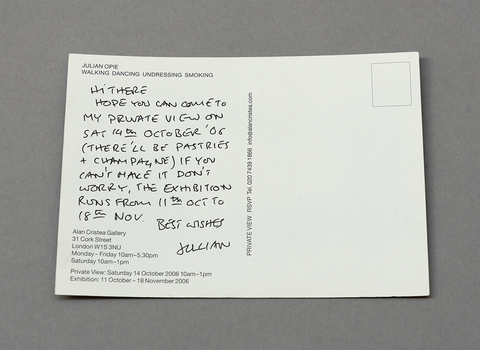 JULIAN OPIE
WALKING DANCING UNDRESSING SMOKING
HI THERE
HOPE YOU CAN COME TO
MY PRIVATE VIEW ON
SAT 14th OCTOBER '06
(THERE'LL BE PASTRIES
+ CHAMPAGNE) IF YOU
CAN'T MAKE IT DON'T
WORRY, THE EXHIBITION
RUNS FROM 11th OCT TO
18th NOV.
BEST WISHES
JULIAN
Alan Cristea Gallery
31 Cork Street
London W1S 3NU
Monday – Friday 10am–5.30pm
Saturday 10am–1pm
Private View: Saturday 14 October 2006 10am–1pm
Exhibition: 11 October – 18 November 2006
PRIVATE VIEW RSVP Tel. 020 7439 1866 info@alancristea.com